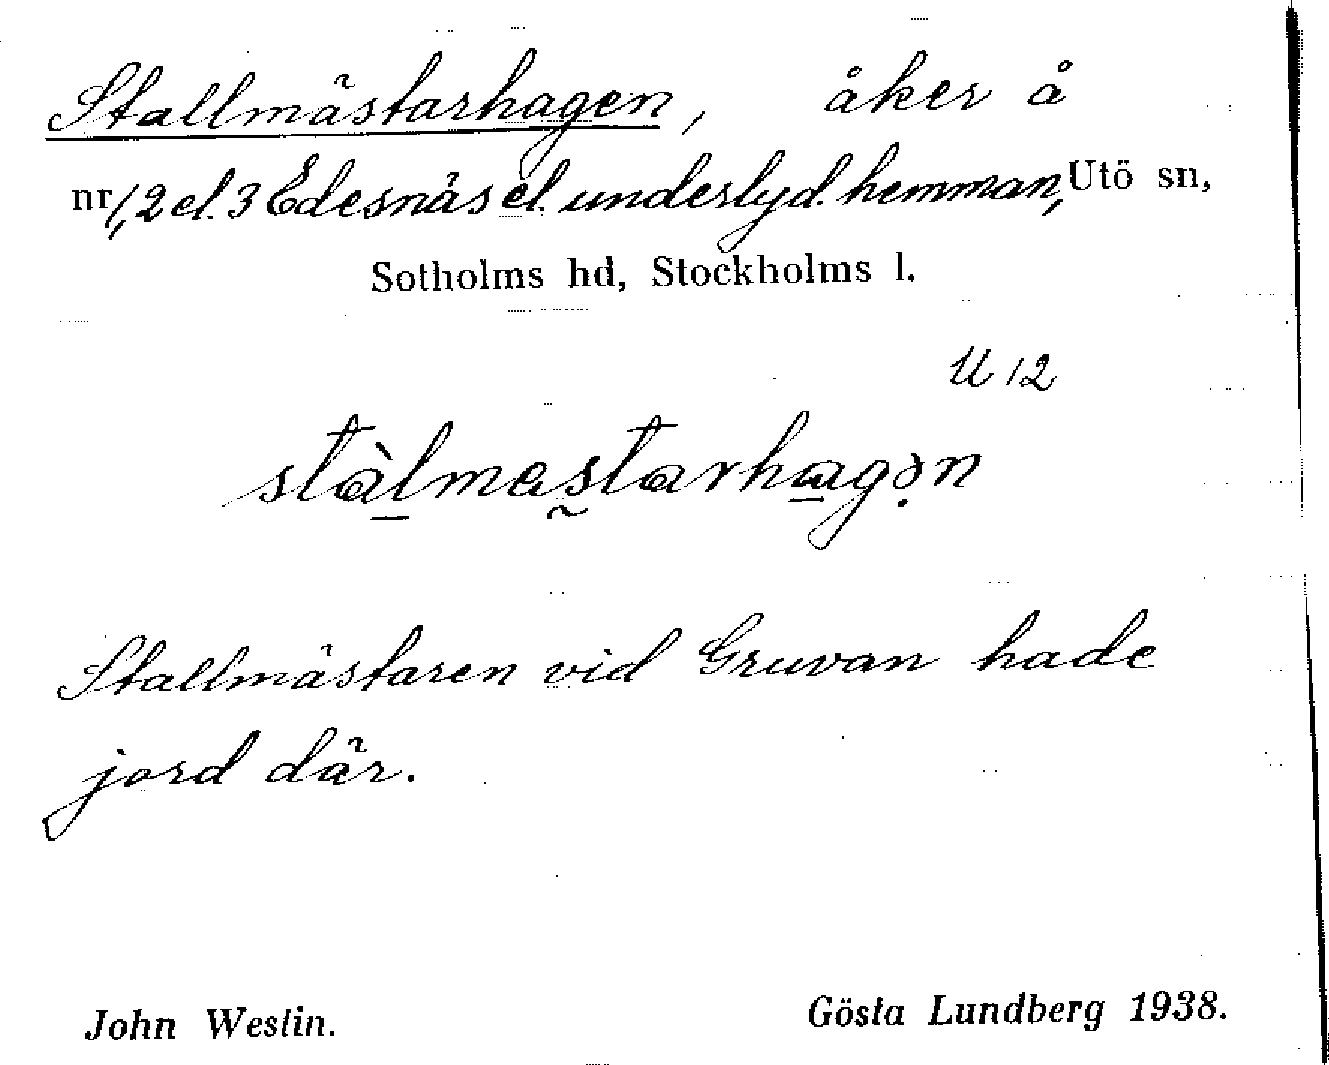 Stallmästarhagen, åker å
nr 1, 2 el. 3 Edesnäs el. underlyd. hemman, Utö sn,
Sotholms hd, Stockholms l.
U 12
stàlmestarhagən
Stallmästaren vid Gruvan hade
jord där.
John Westin. Gösta Lundberg 1938.